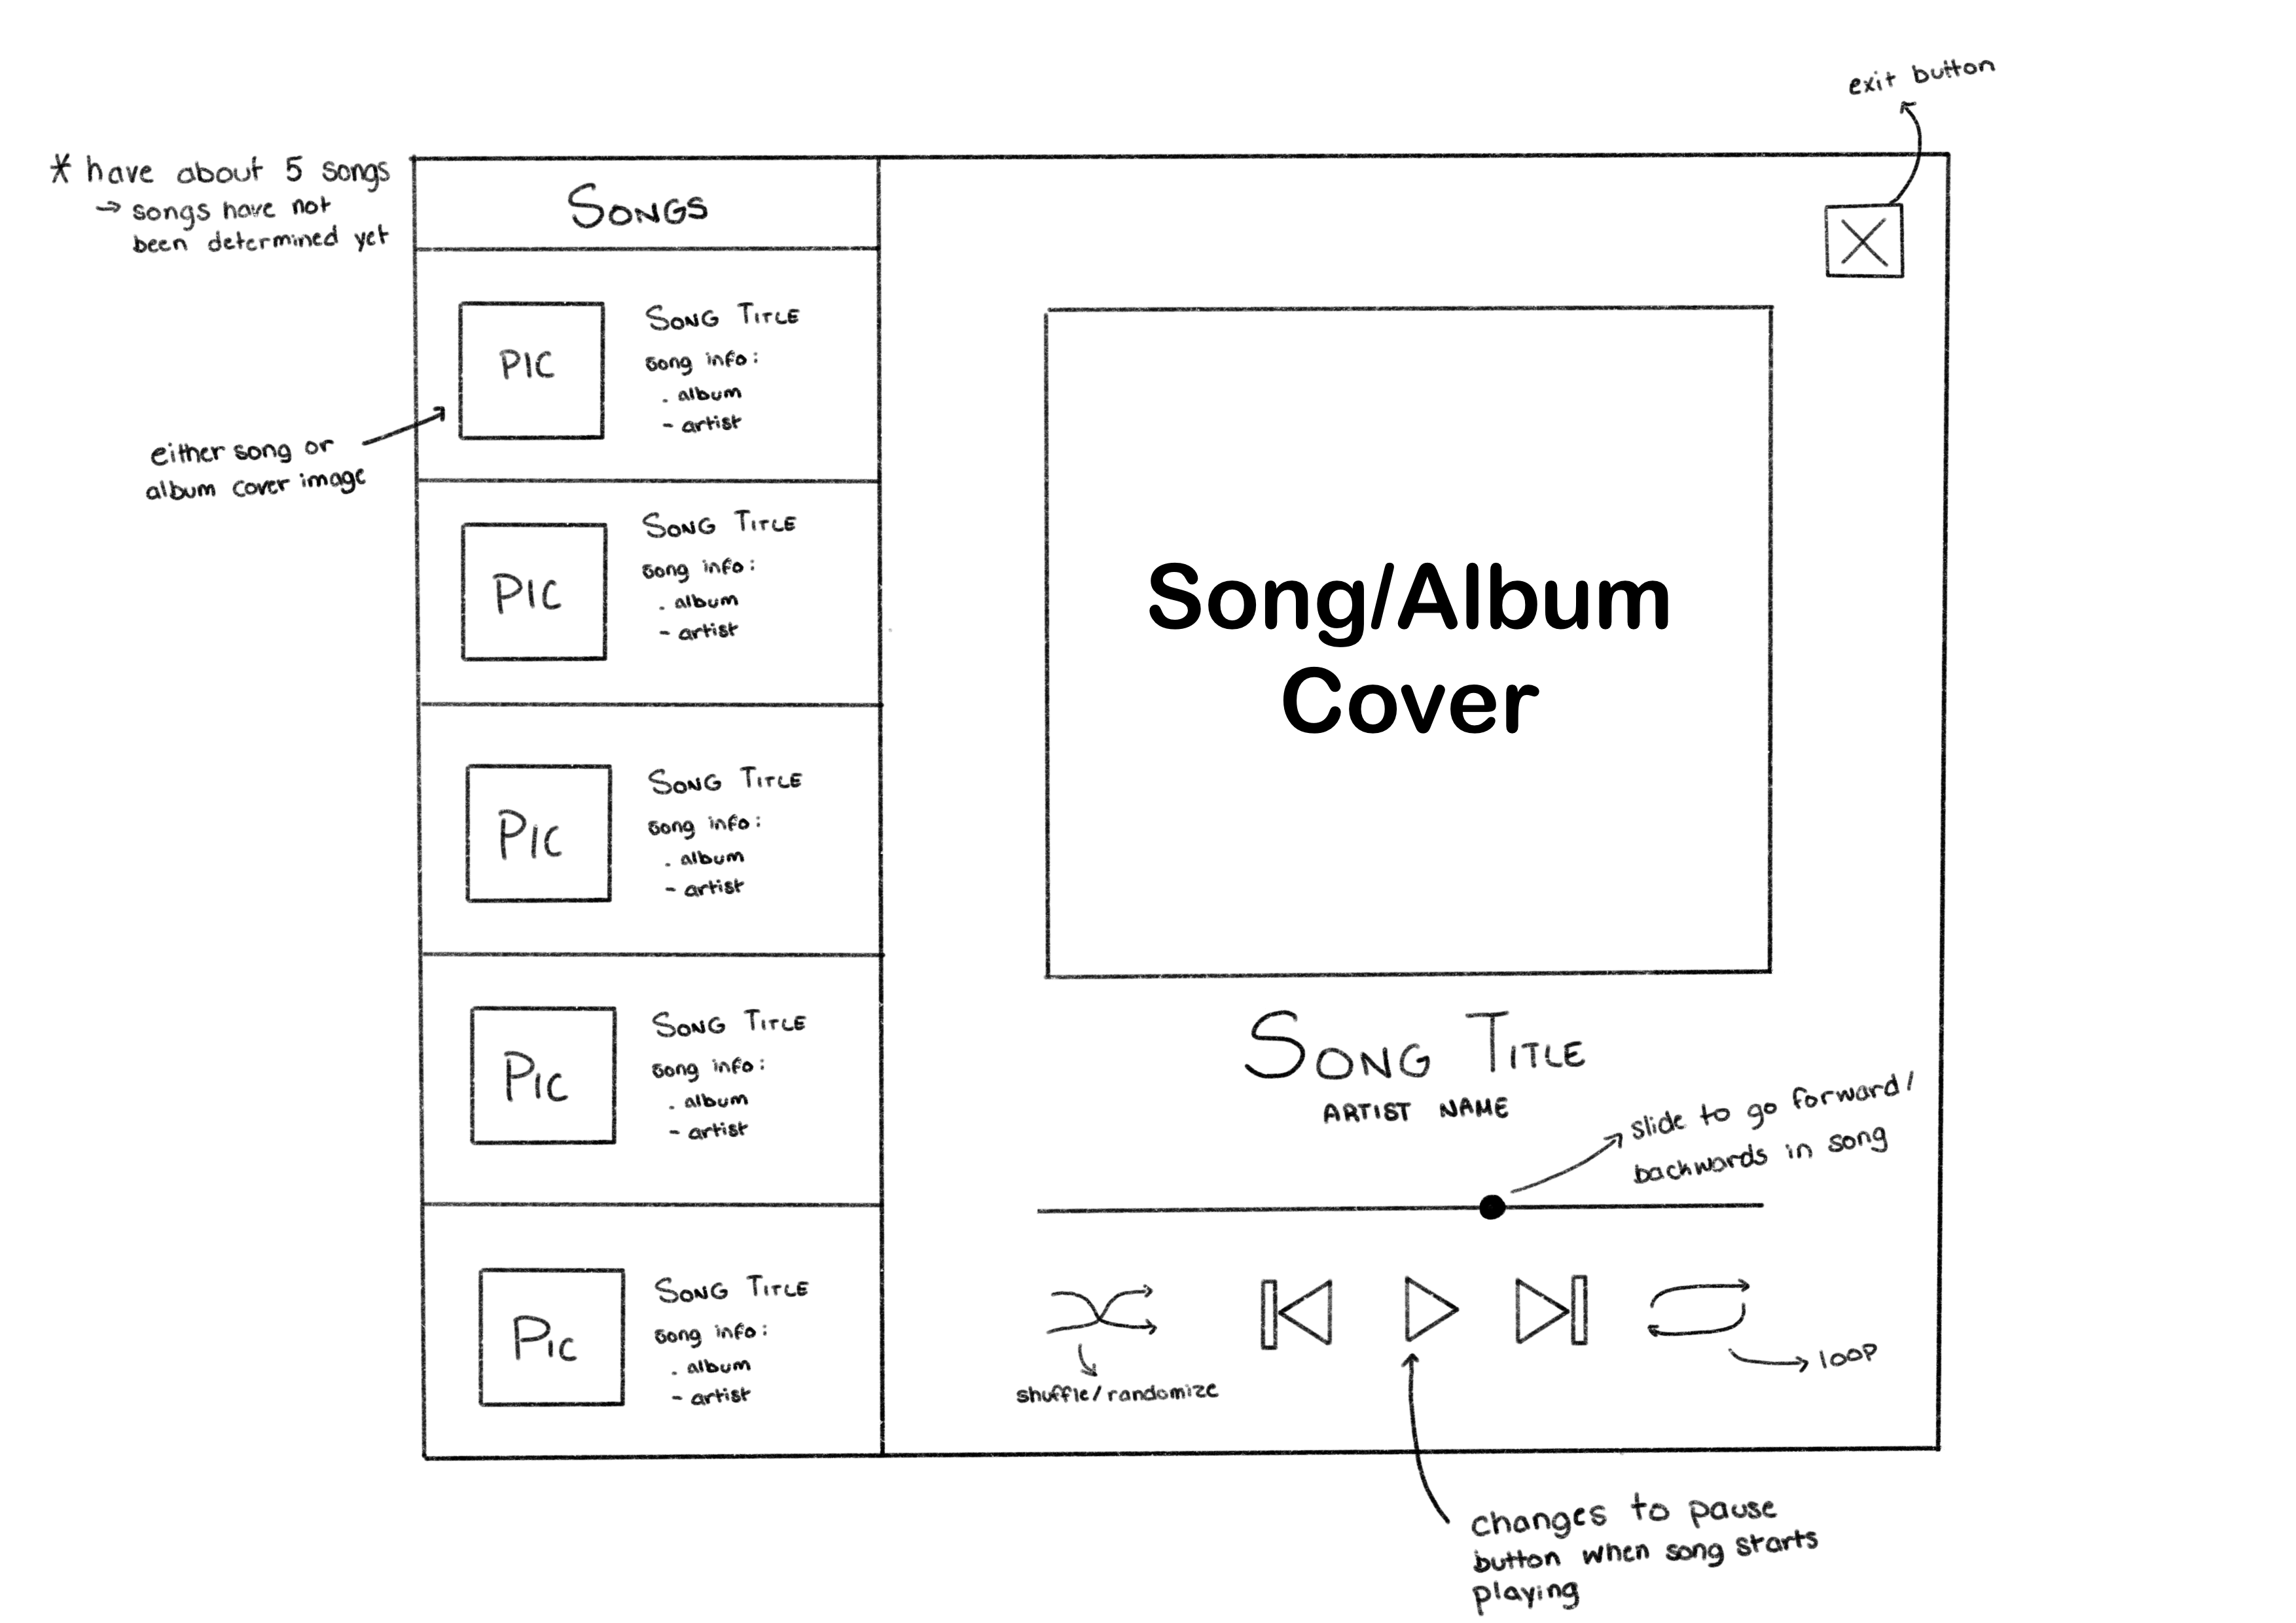 exit button
* have about 5 songs
→ songs have not
been determined yet
SONGS
PIC
SONG TITLE
song info:
. album
- artist
either song or
album cover image
PIC
SONG TITLE
song info:
. album
- artist
PIC
SONG TITLE
song info:
. album
- artist
PIC
SONG TITLE
song info:
. album
- artist
PIC
SONG TITLE
song info:
. album
- artist
X
Song/Album
Cover
SONG TITLE
ARTIST NAME
slide to go forward/
backwards in song
shuffle/randomize
loop
changes to pause
button when song starts
playing